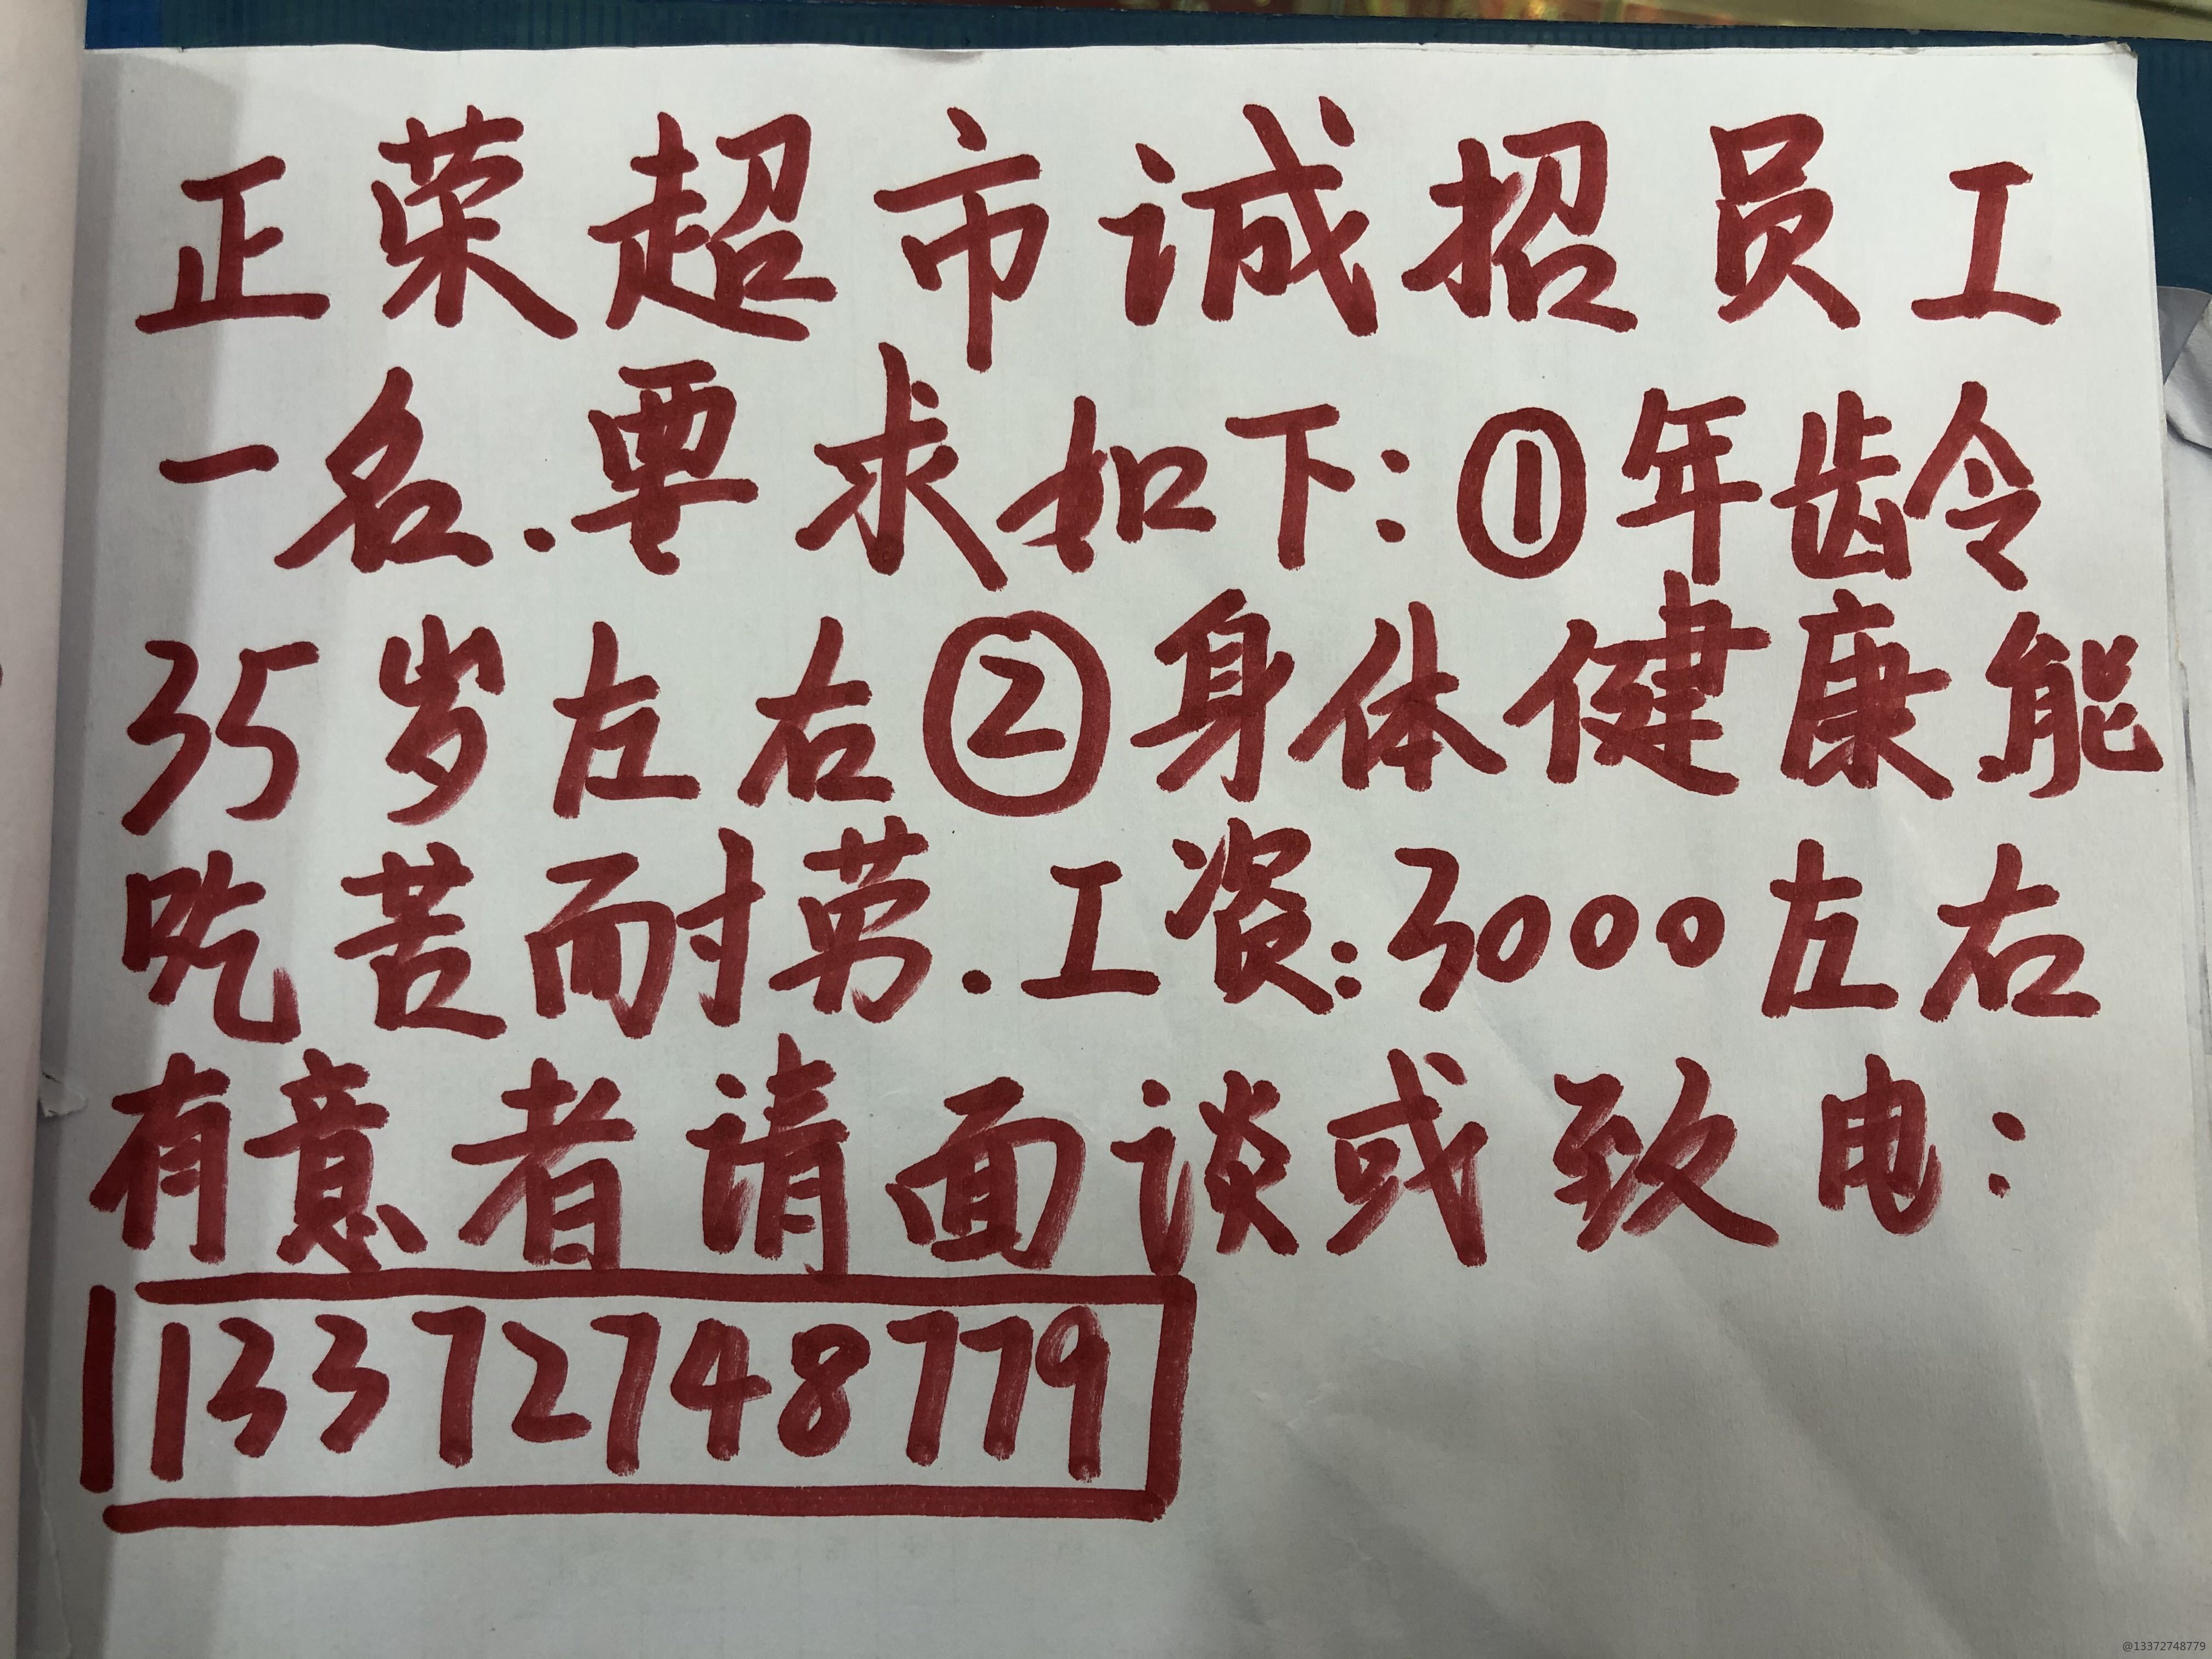 正荣超市诚招员工
一名.要求如下:①年龄
35岁左右②身体健康能
吃苦耐劳.工资:3000左右
有意者请面谈或致电:
13372748779
@13372748779